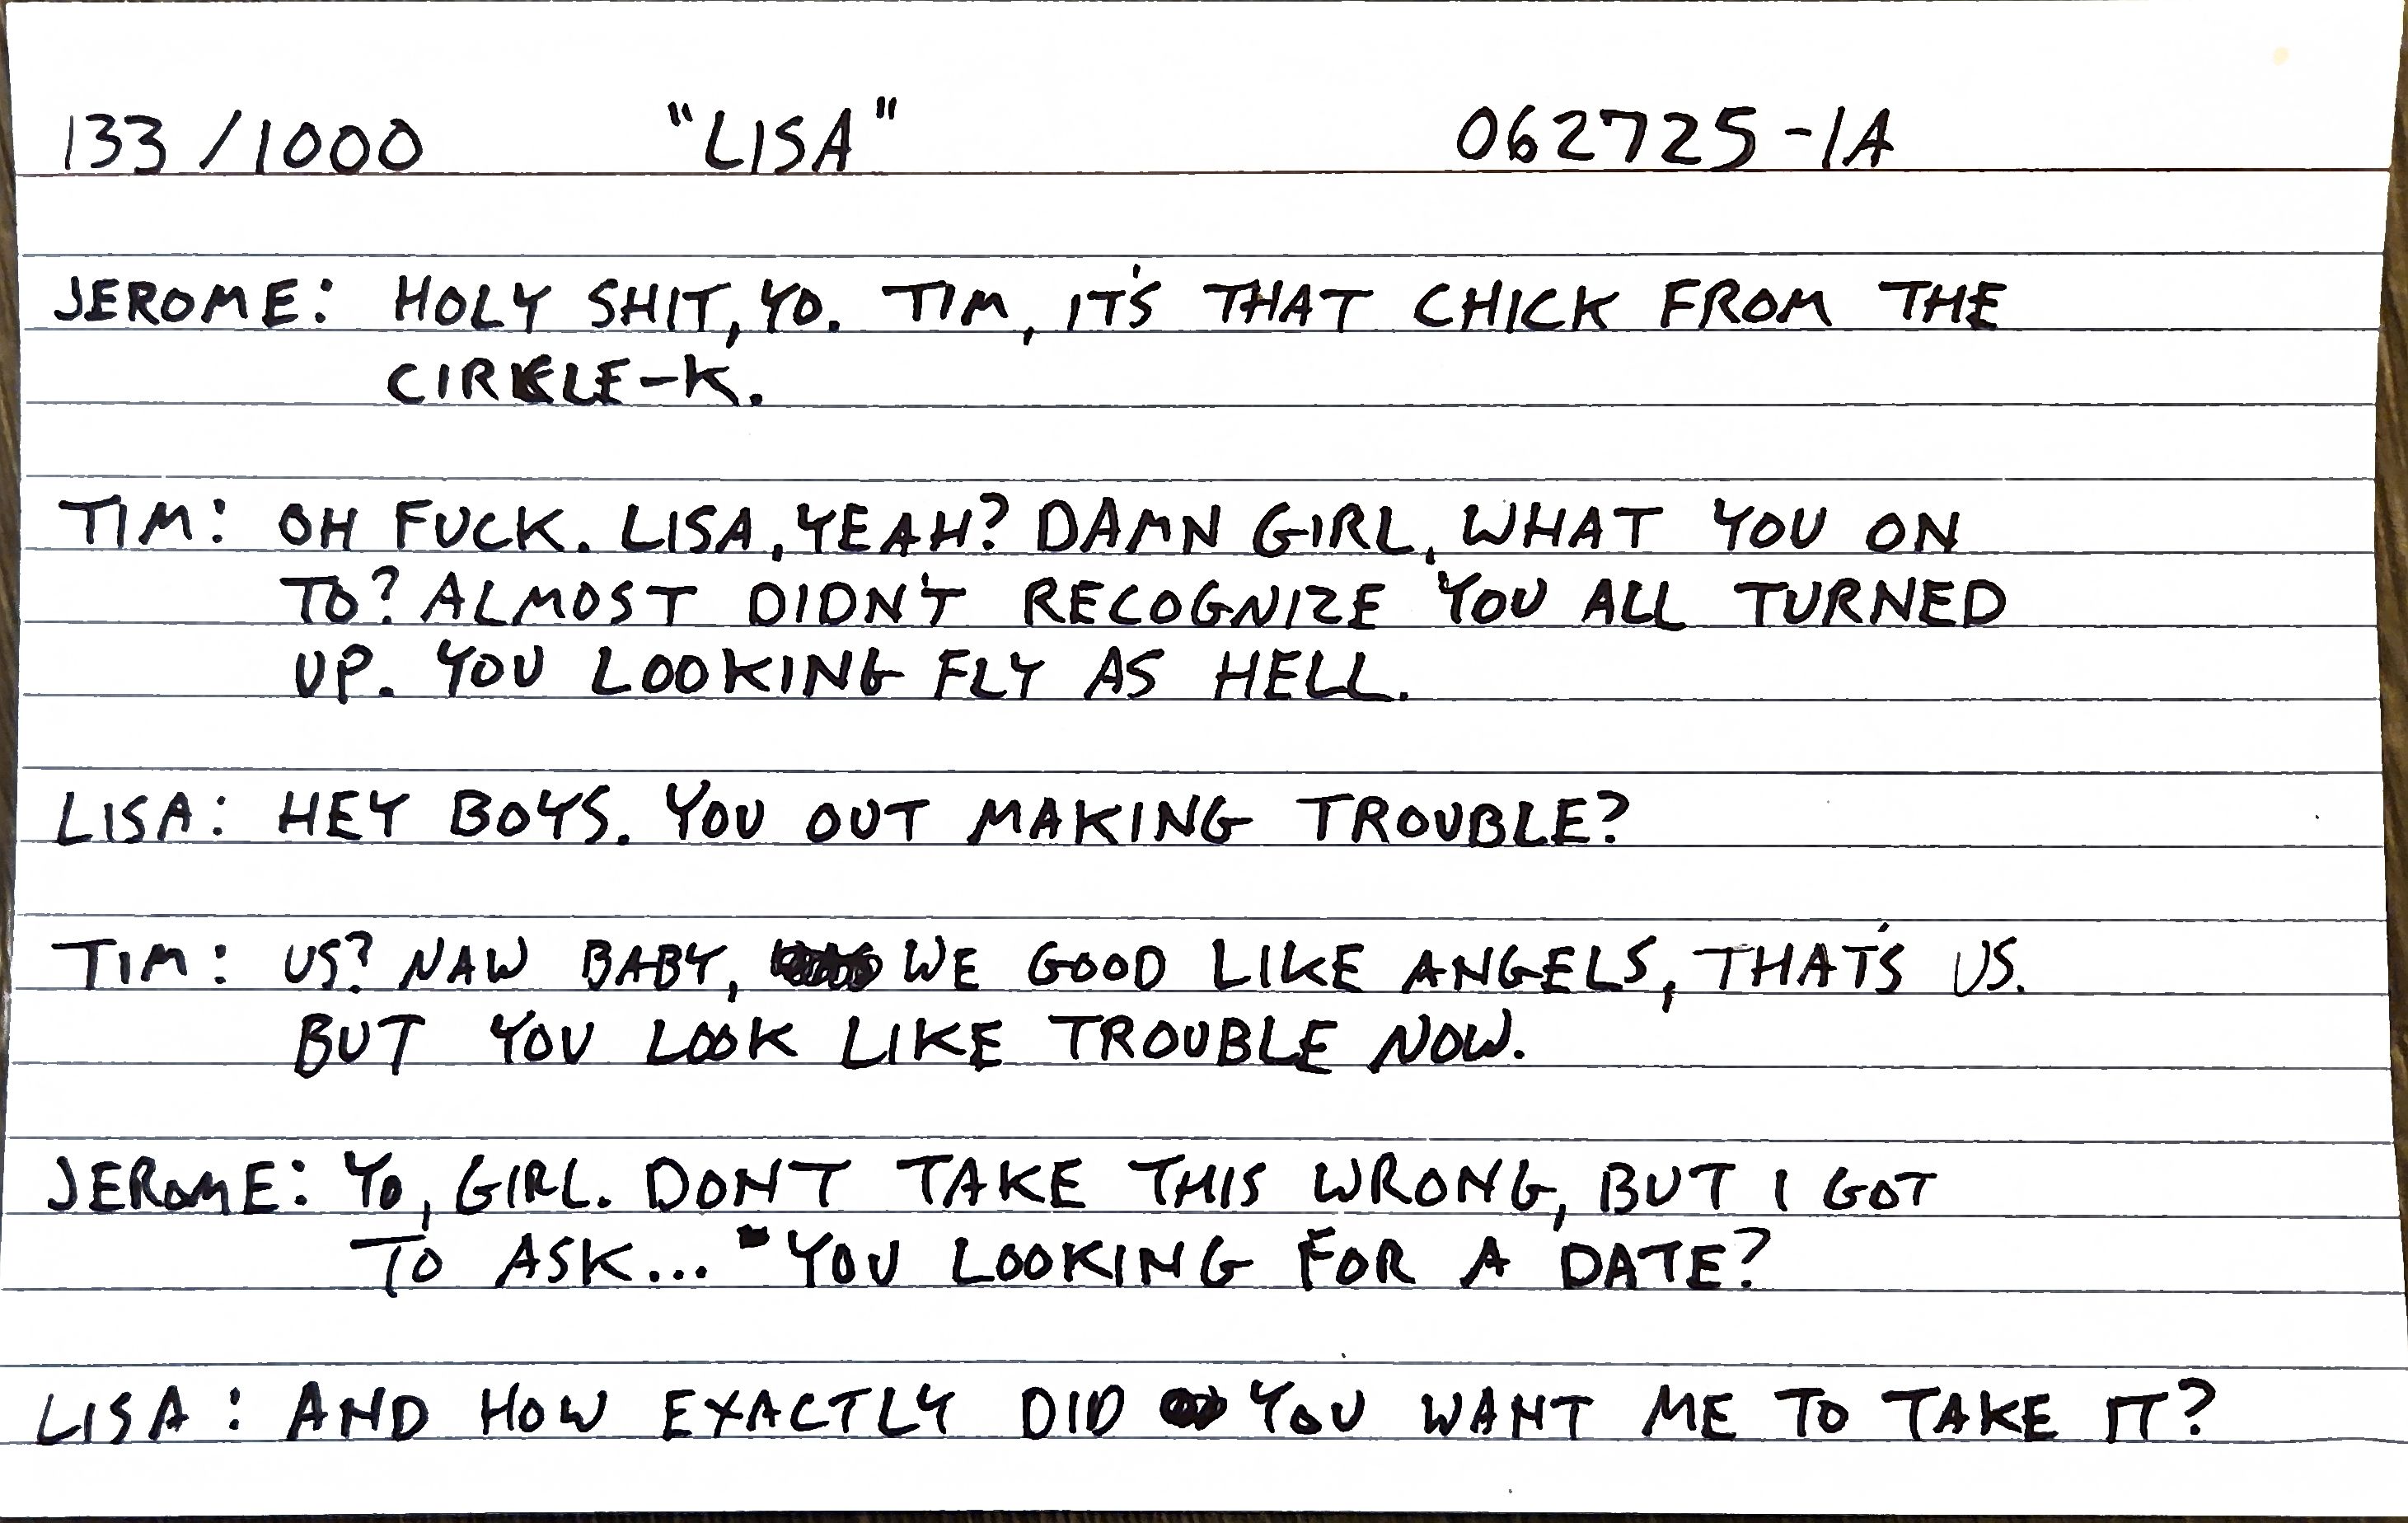 133/1000 "LISA" 062725-1A
JEROME: HOLY SHIT, YO. TIM, IT'S THAT CHICK FROM THE
CIRKLE-K.
TIM: OH FUCK. LISA, YEAH? DAMN GIRL, WHAT YOU ON
TO? ALMOST DIDN'T RECOGNIZE YOU ALL TURNED
UP. YOU LOOKING FLY AS HELL.
LISA: HEY BOYS. YOU OUT MAKING TROUBLE?
TIM: US? NAW BABY, WE GOOD LIKE ANGELS, THAT'S US.
BUT YOU LOOK LIKE TROUBLE NOW.
JEROME: YO, GIRL. DONT TAKE THIS WRONG, BUT I GOT
TO ASK... YOU LOOKING FOR A DATE?
LISA: AND HOW EXACTLY DID YOU WANT ME TO TAKE IT?